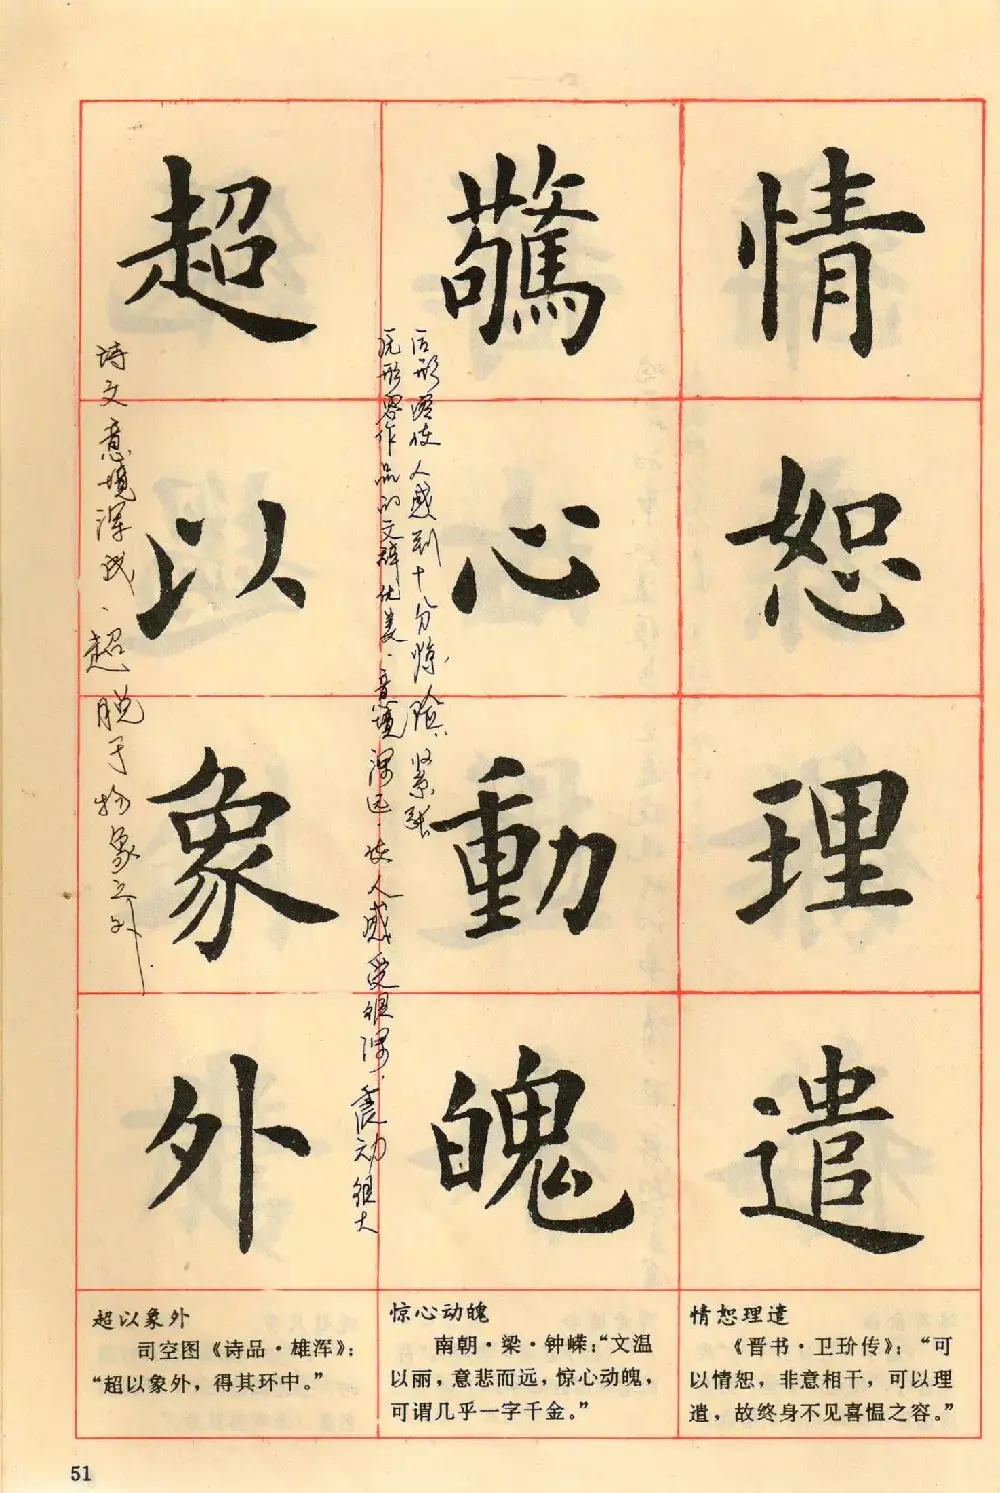 情恕理遣
驚心動魄
超以象外
后形容使人感到十分惊险紧张
现形容作品的文辞优美、意境深远，使人感受很深，震动很大
诗文意境浑成、超脱于物象之外
超以象外
司空图《诗品·雄浑》：
“超以象外，得其环中。”
惊心动魄
南朝·梁·钟嵘：“文温
以丽，意悲而远，惊心动魄，
可谓几乎一字千金。”
情恕理遣
《晋书·卫玠传》：“可
以情恕，非意相干，可以理
遣，故终身不见喜愠之容。”
51